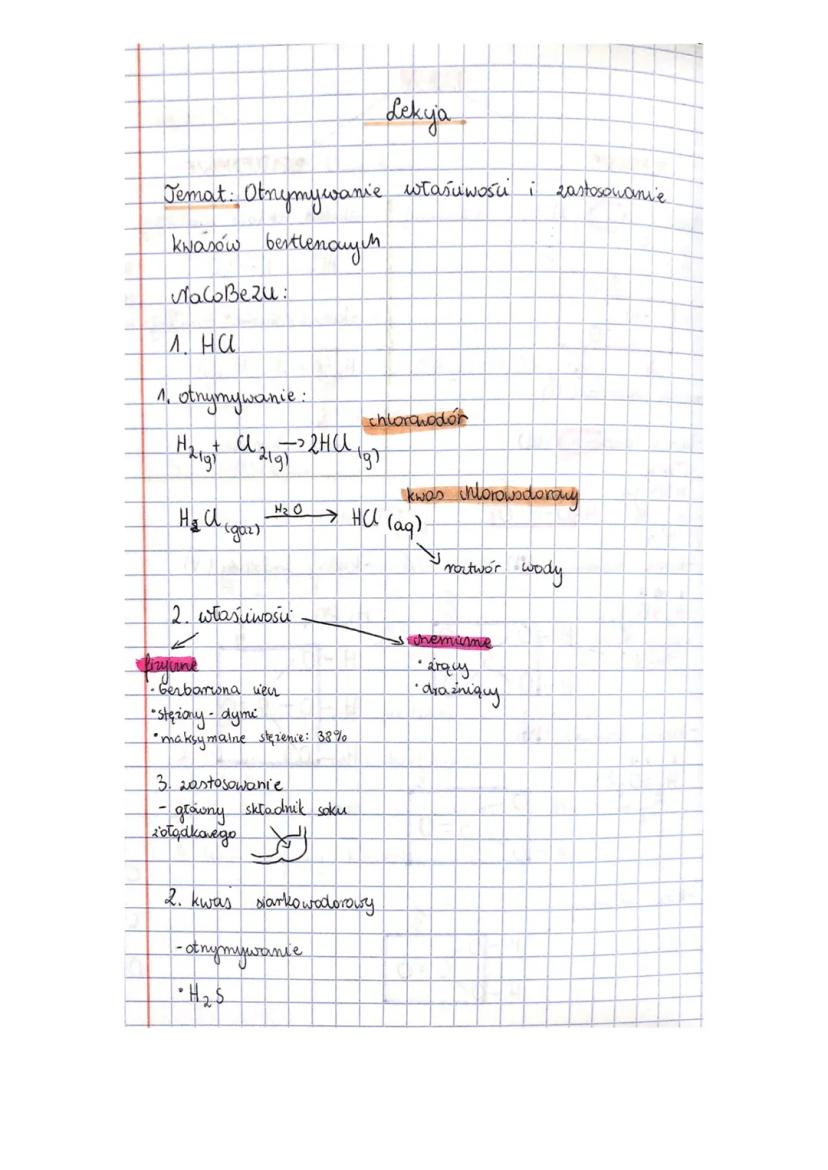 Lekcja
Temat: Otrzymywanie właściwości i zastosowanie
kwasów beztlenowych
NaCoBeZU:
1. HCl
1. otrzymywanie:
chlorowodór
H2(g) + Cl2(g) → 2HCl (g)
kwas chlorowodorowy
HCl (gaz) H2O → HCl (aq)
roztwór wody
2. właściwości
fizyczne
chemiczne
• bezbarwna ciecz
• żrący
• stężony - dymi
• drażniący
• maksymalne stężenie: 38%
3. zastosowanie
- główny składnik soku
żołądkowego
2. kwas siarkowodorowy
- otrzymywanie
• H2S